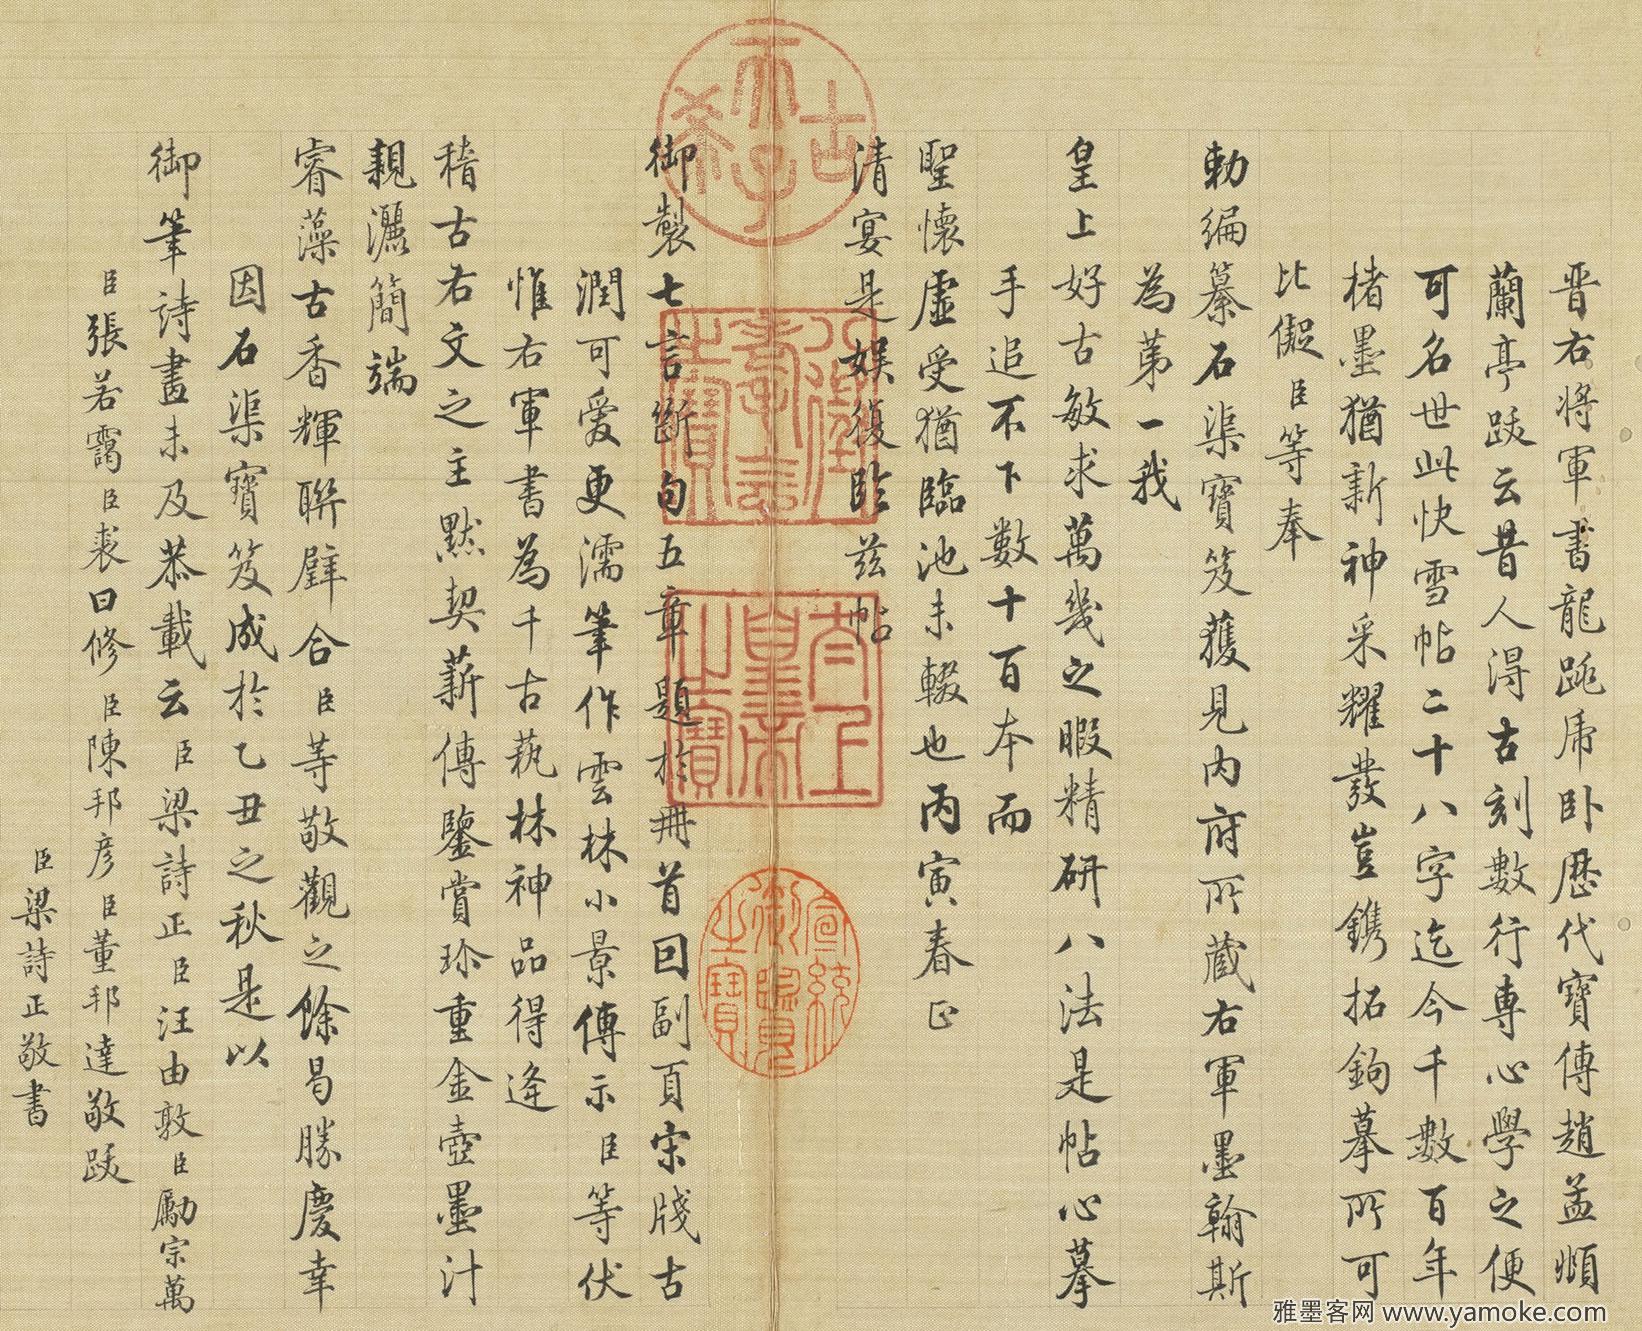 晋右將軍書龍跳虎卧歷代寶傳趙孟頫
蘭亭跋云昔人得古刻數行專心學之便
可名世此快雪帖二十八字迄今千數百年
楮墨猶新神采耀發豈鐫拓鉤摹所可
比儗臣等奉
勅編纂石渠寶笈獲見内府所藏右軍墨翰斯
為第一我
皇上好古敏求萬幾之暇精研八法是帖心摹
手追不下數十百本而
聖懷虛受猶臨池未輟也丙寅春正
清宴是娛復臨兹帖
御製七言斷句五章題於冊首回副頁宋牋古
潤可愛更濡筆作雲林小景傳示臣等伏
惟右軍書為千古蓺林神品得逢
稽古右文之主默契薪傳鑒賞珍重金壺墨汁
親灑簡端
睿藻古香輝聯璧合臣等敬觀之餘曷勝慶幸
因石渠寶笈成於乙丑之秋是以
御筆詩畫未及恭載云臣梁詩正臣汪由敦臣勵宗萬
臣張若靄臣裘曰修臣陳邦彦臣董邦達敬跋
臣梁詩正敬書
古
天子
希
八徵
耄念
之寶
太上
皇帝
之寶
宣統
御覽
之寶
雅墨客网 www.yamoke.com